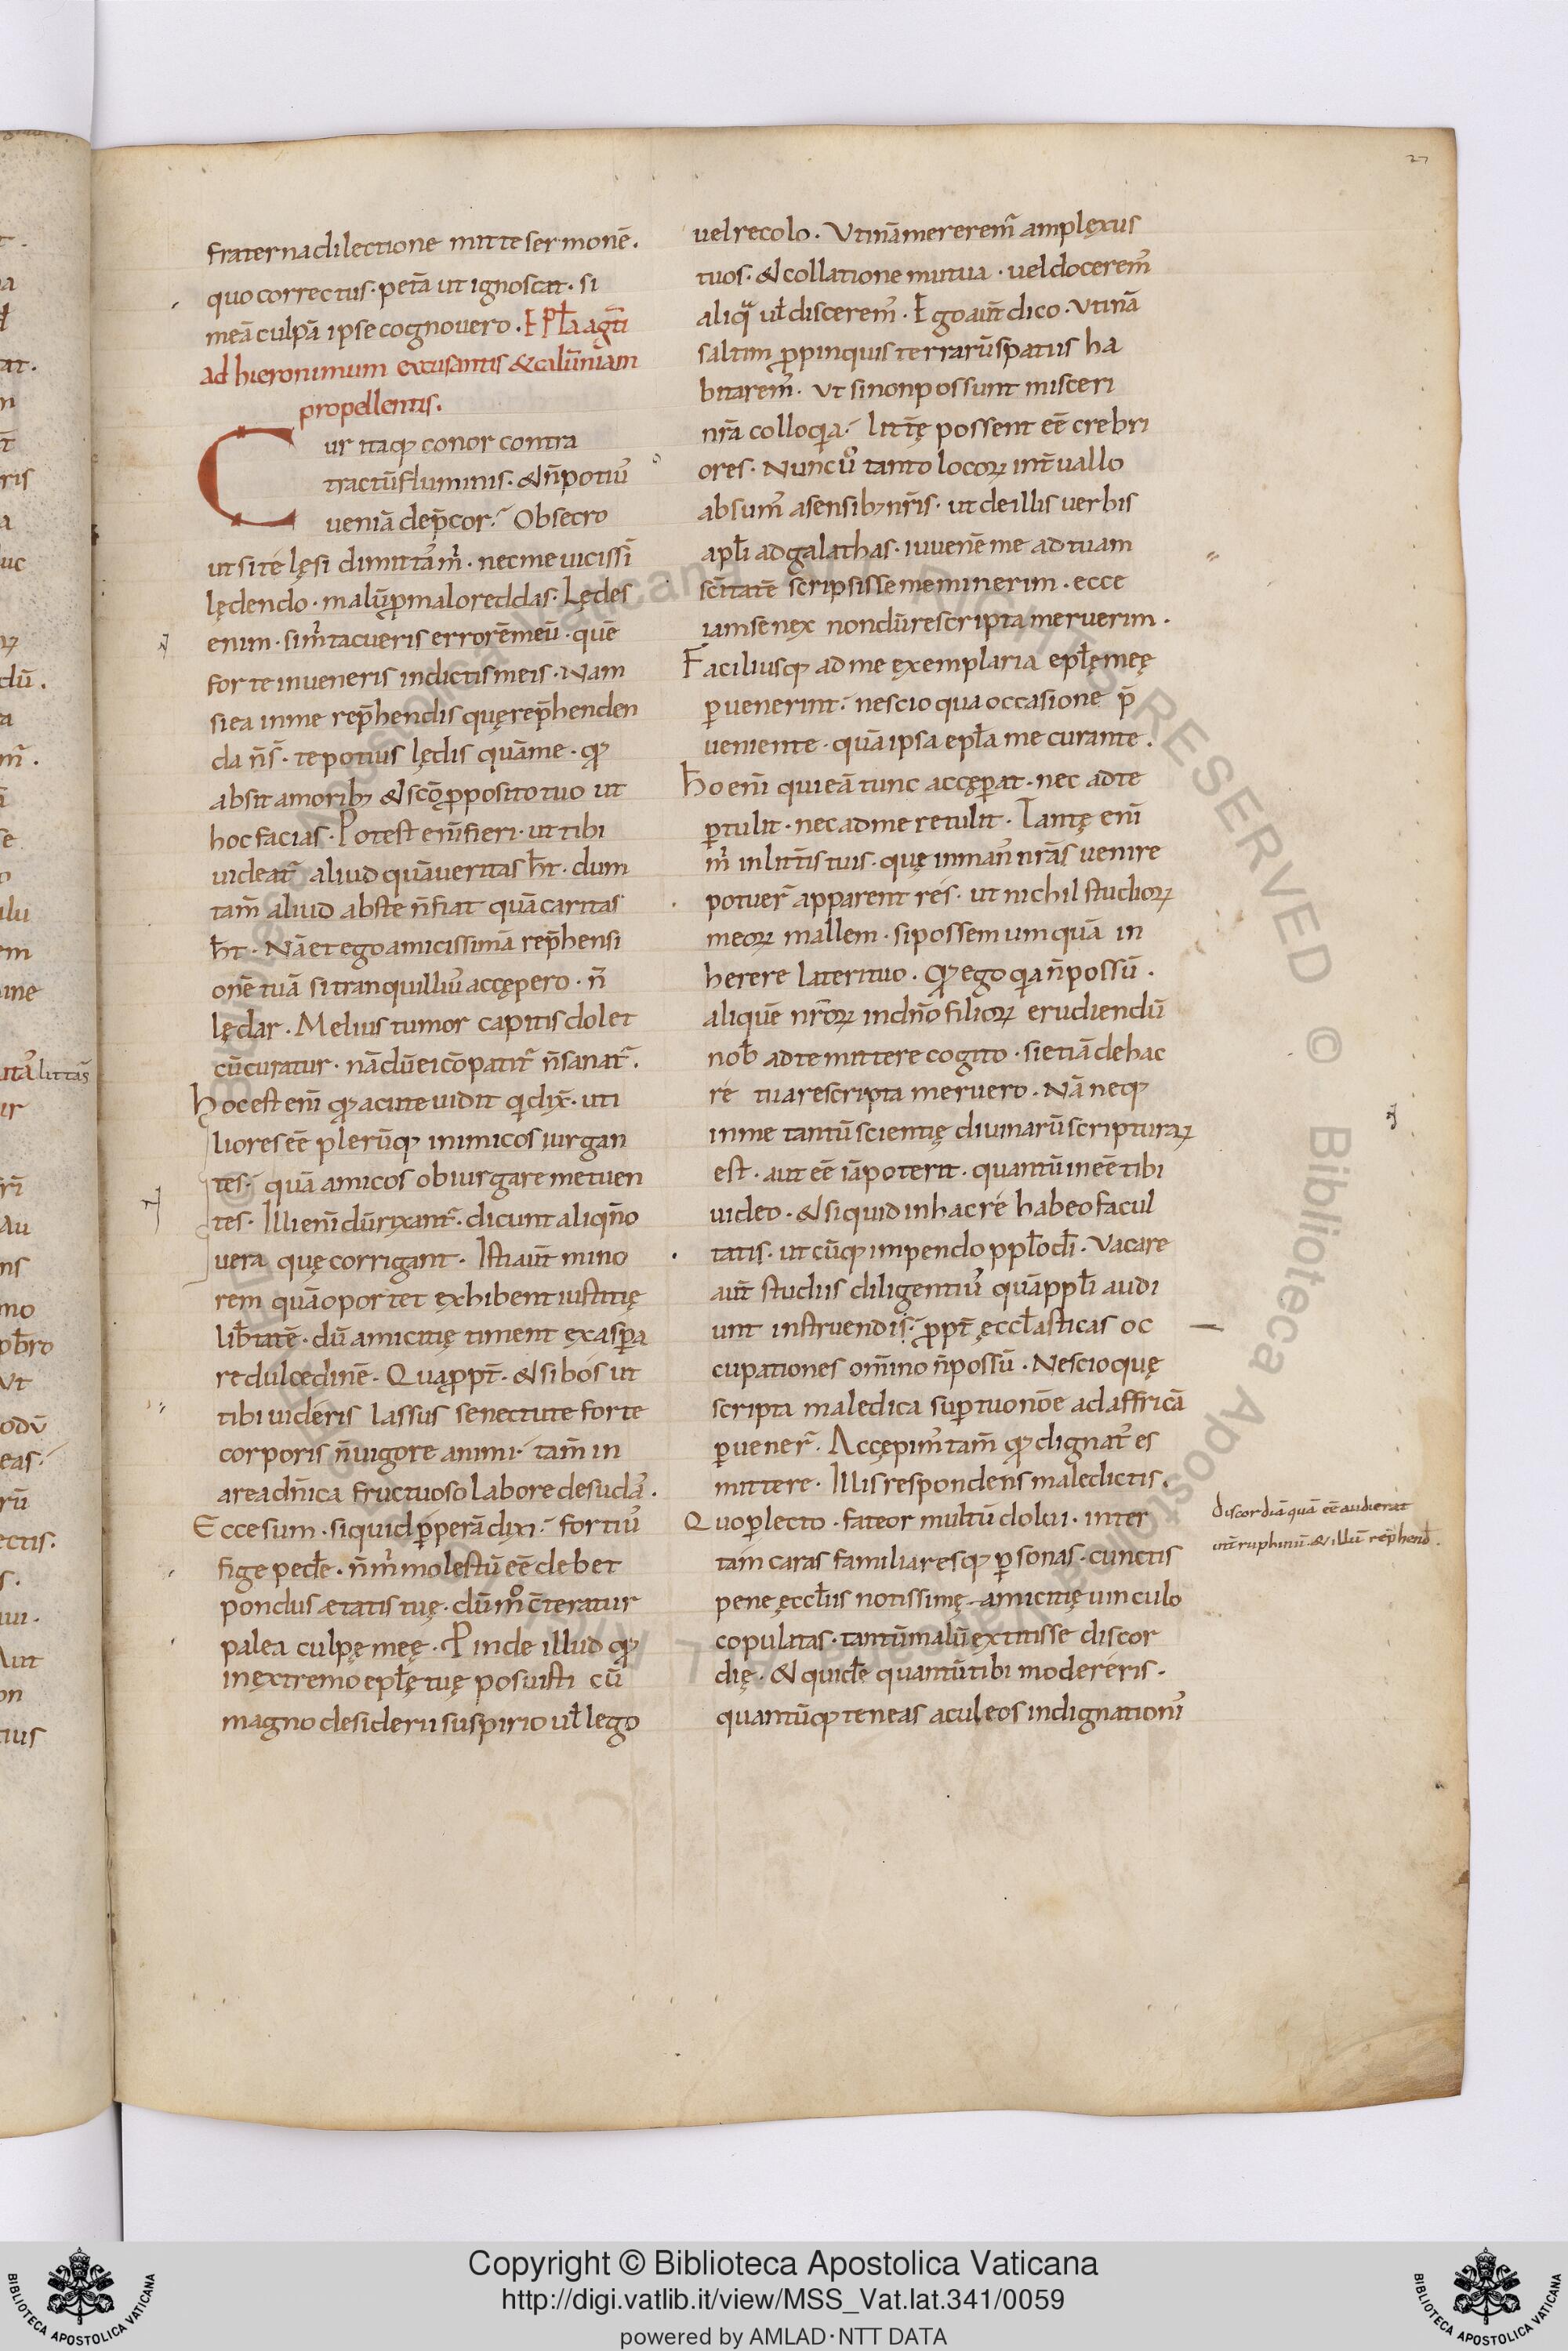 27
fraterna dilectione mitte sermonē.
quo correctus· petā ut ignoscat· si
meā culpā ipse cognouero. EPła agt̄i
ad hieronimum excusantis & calūniam
propellentis.
Cur itaq; conor contra
tractū fluminis· & n̄ potiuꝰ
ueniā dep̄cor? Obsecro
ut si té lęsi dimittam̄· nec me uicissī
lędendo· malū ꝓ malo reddas. Lędes
enim· si m̄ tacueris errorē meū· quē
forte inueneris in dictis meis· Nam
si ea in me rep̄hendis quę rep̄henden
da n̄ s̄· te potius lędis quā me· qđ
absit a morib; & scō ꝓposito tuo ut
hoc facias· Potest eni̅ fieri· ut tibi
uideat̄ aliud quā ueritas h̄t· dum
tam̄ aliud abs te n̄ fiat quā caritas
h̄t· Nā et ego amicissimā rep̄hensi
onē tuā si tranquilliuꝰ accępero· n̄
lędar. Melius tumor capitis dolet
cū curatur· nā dū ei cōpatit̄ n̄ sanat̄.
hoc est eni̅ qđ acute uidit q̇ dix̄· uti
liores eē plerūq; inimicos iurgan
tes· quā amicos obiurgare metuen
tes· Illi eni̅ dū rixant̄· dicunt aliqn̄o
uera quę corrigant· Isti aūt mino
rem quā oportet exhibent iustitię
lib̄tatē· dū amicitię timent exasꝑa
re dulcedinē· Quāꝓpt̄· & si bós ut
tibi uideris lassus senectute forte
corporis n̄ uigore animi· tam̄ in
area dn̄ica fructuoso labore desudā.
Ecce sum· si quid ꝑperā dixi· fortiuꝰ
fige pedē· n̄ m̄ molestū eē debet
pondus ætatis tuę· dū m̊ c̄teratur
palea culpę meę· Pinde illud qđ
in extremo epłę tuę posuisti cū
magno desiderii suspirio uł lego
uel recolo· Vtinā mererem̄ amplexus
tuos· & collatione mutua· uel docerem̄
aliqͣ uł discerem̄· Ego aūt dico· Vtinā
saltim ꝓpinquis terrarū spatiis ha
bitarem̄· ut si non possunt misceri
nr̄a colloq̇a· litt̄ę possent eē crebri
ores· Nunc ů tanto locoꝝ int̄uallo
absum̄ a sensib; nr̄is· ut de illis uerbis
apłi ad galathas· iuuenē me ad tuam
sc̄itatē scripsisse meminerim· ecce
iam senex nondū rescripta meruerim·
Faciliusq; ad me exemplaria epłę meę
ꝑuenerint· nescio qua occasione p̄
ueniente· quā ipsa epła me curante.
Ho eni̅ qui eā tunc accęꝑat· nec ad te
ꝑtulit· nec ad me retulit· Tantę eni̅
m̄ in litt̄is tuis· quę in manꝰ nr̄ās uenire
potuer̄ apparent rés· ut nichil studioꝝ
meoꝝ mallem· si possem umquā in
herere lateri tuo· Qđ ego q̇a n̄ possū·
aliquē nr̄oꝝ in dn̄o filioꝝ erudiendū
nob̄ ad te mittere cogito· si etiā de hac
ré tua rescripta meruero· Nā neq;
in me tantū scientię diuinarū scripturaꝝ
est· aut eē iā poterit· quantū inēē tibi
uideo· & si quid in hac ré habeo facul
tatis· ut cūq; impendo ppło dī· Vacare
aūt studiis diligentiuꝰ quā ppłi audi
unt instruendis· ꝓpt̄ ęccłasticas oc
cupationes om̄ino n̄ possū· Nescio quę
scripta maledica suꝑ tuo nōe ad affricā
ꝑuener̄· Accępimꝰ tam̄ qđ dignatꝰ es
mittere· Illis respondens maledictis·
Quo ꝑlecto· fateor multū dolui· inter
tam caras familiaresq; ꝑsonas· cunctis
pene ęccłiis notissimę amicitię uinculo
copulatas· tantū malū extitisse discor
dię· & quidē quantū tibi modereris·
quantūq; teneas aculeos indignationiꝰ
discordiā quā eē audierat
int̄ ruphinū· & illū rep̄hend̄.
Copyright © Biblioteca Apostolica Vaticana
http://digi.vatlib.it/view/MSS_Vat.lat.341/0059
powered by AMLAD·NTT DATA
BIBLIOTECA APOSTOLICA VATICANA
BIBLIOTECA APOSTOLICA VATICANA